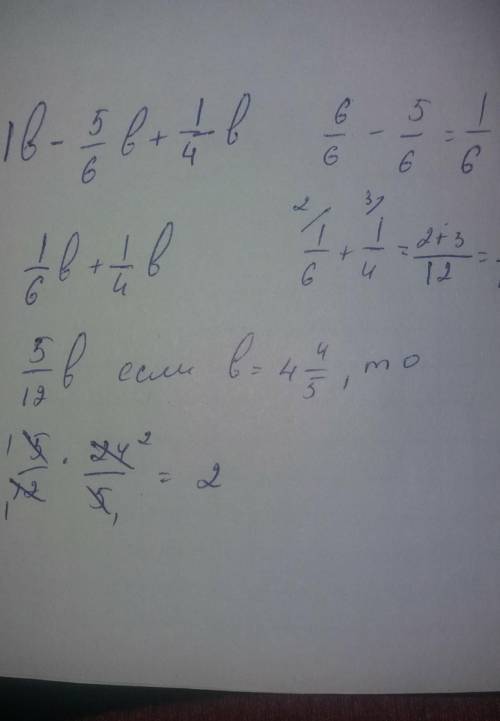 1в - 5/6 в + 1/4 в
6/6 - 5/6 = 1/6
1/6 в + 1/4 в
2/ 3/
1/6 + 1/4 = 2+3/12 =
5/12 в если в = 4 4/5, то
1 5/12 1 · 24 2/5 1 = 2